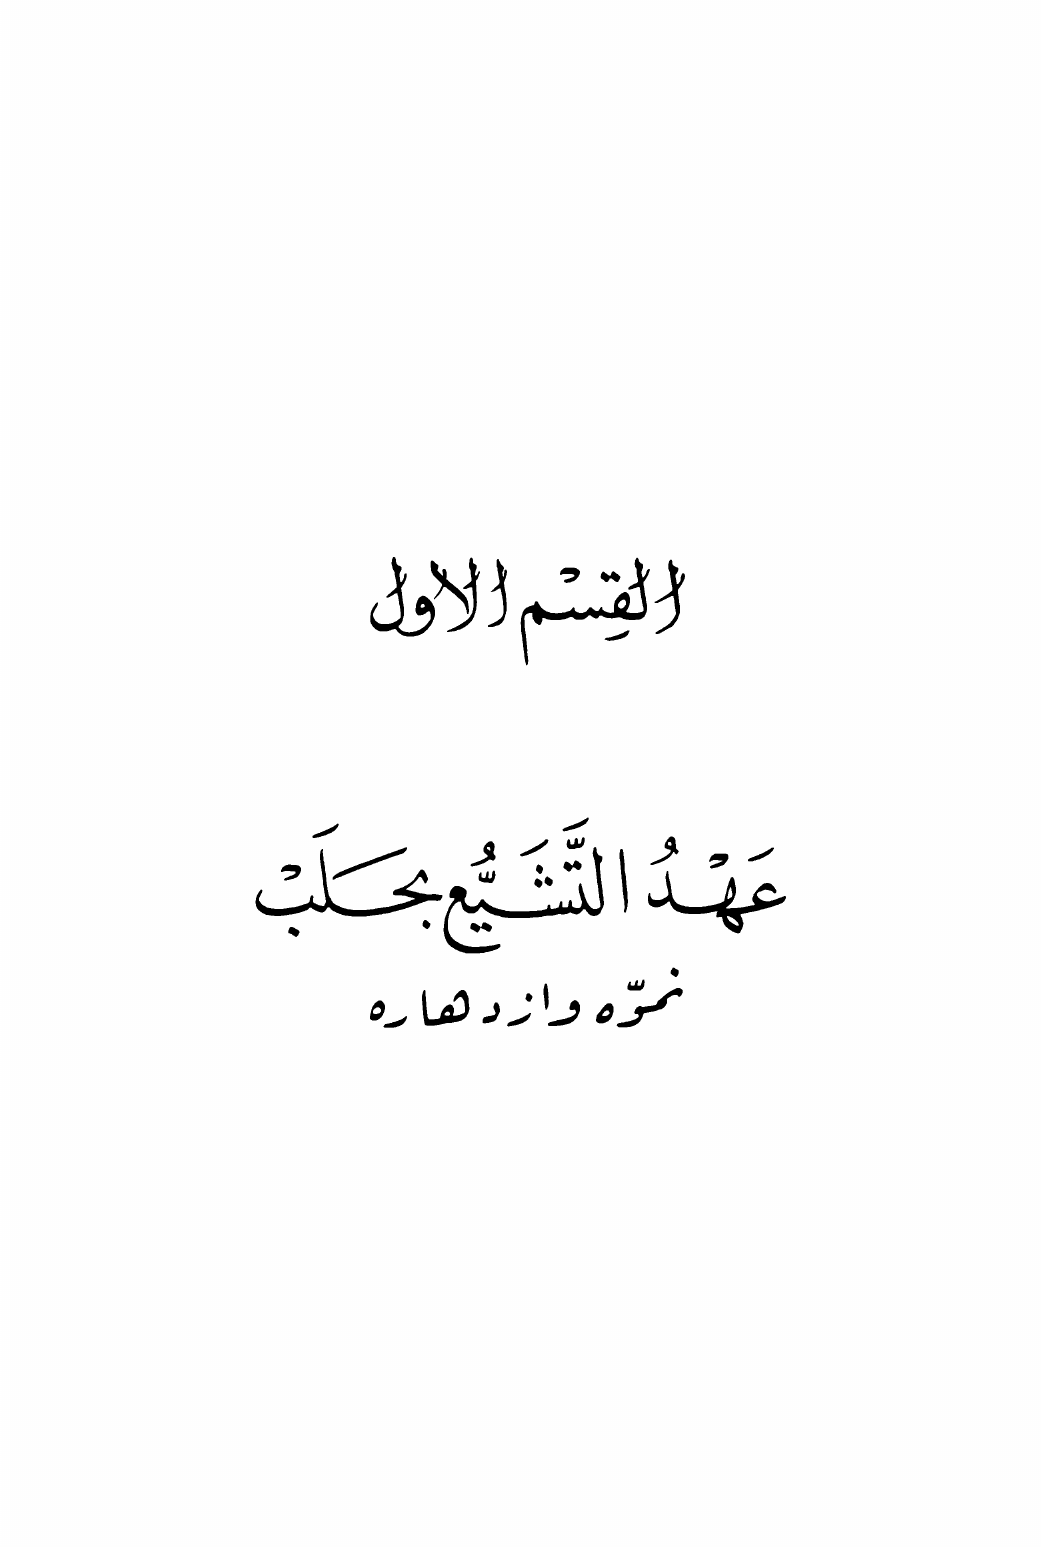 القِسْم الاول
عَهْدُ التَّشَيُّع بحَلَبْ
نموّه وازدهاره